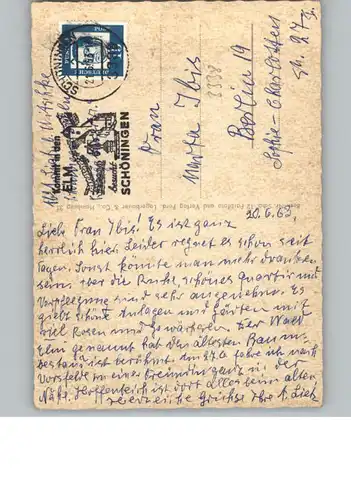 SCHÖNINGEN
Kommt in den
ELM
besucht
SCHÖNINGEN
Frau
Marta Ibis
Berlin 19
Sophie-Charlotten
Str. 27
20.6.63.
Liebe Frau Ibis! Es ist ganz
herrlich hier. Leider regnet es schon seit
Tagen. Sonst könnte man mehr draußen
sein, aber die Ruhe, schönes Quartier und
Verpflegung sind sehr angenehm. Es
gibt schöne Anlagen und Gärten mit
viel Rosen und Der Wald
Elm genannt hat den ältesten Baum-
bestand ist berühmt. Am 27.6. fahre ich nach
Vorsfelde zu einer Freundin ganz in der
Nähe. Hoffentlich ist dort alles beim alten
Herzliche Grüße Ihre